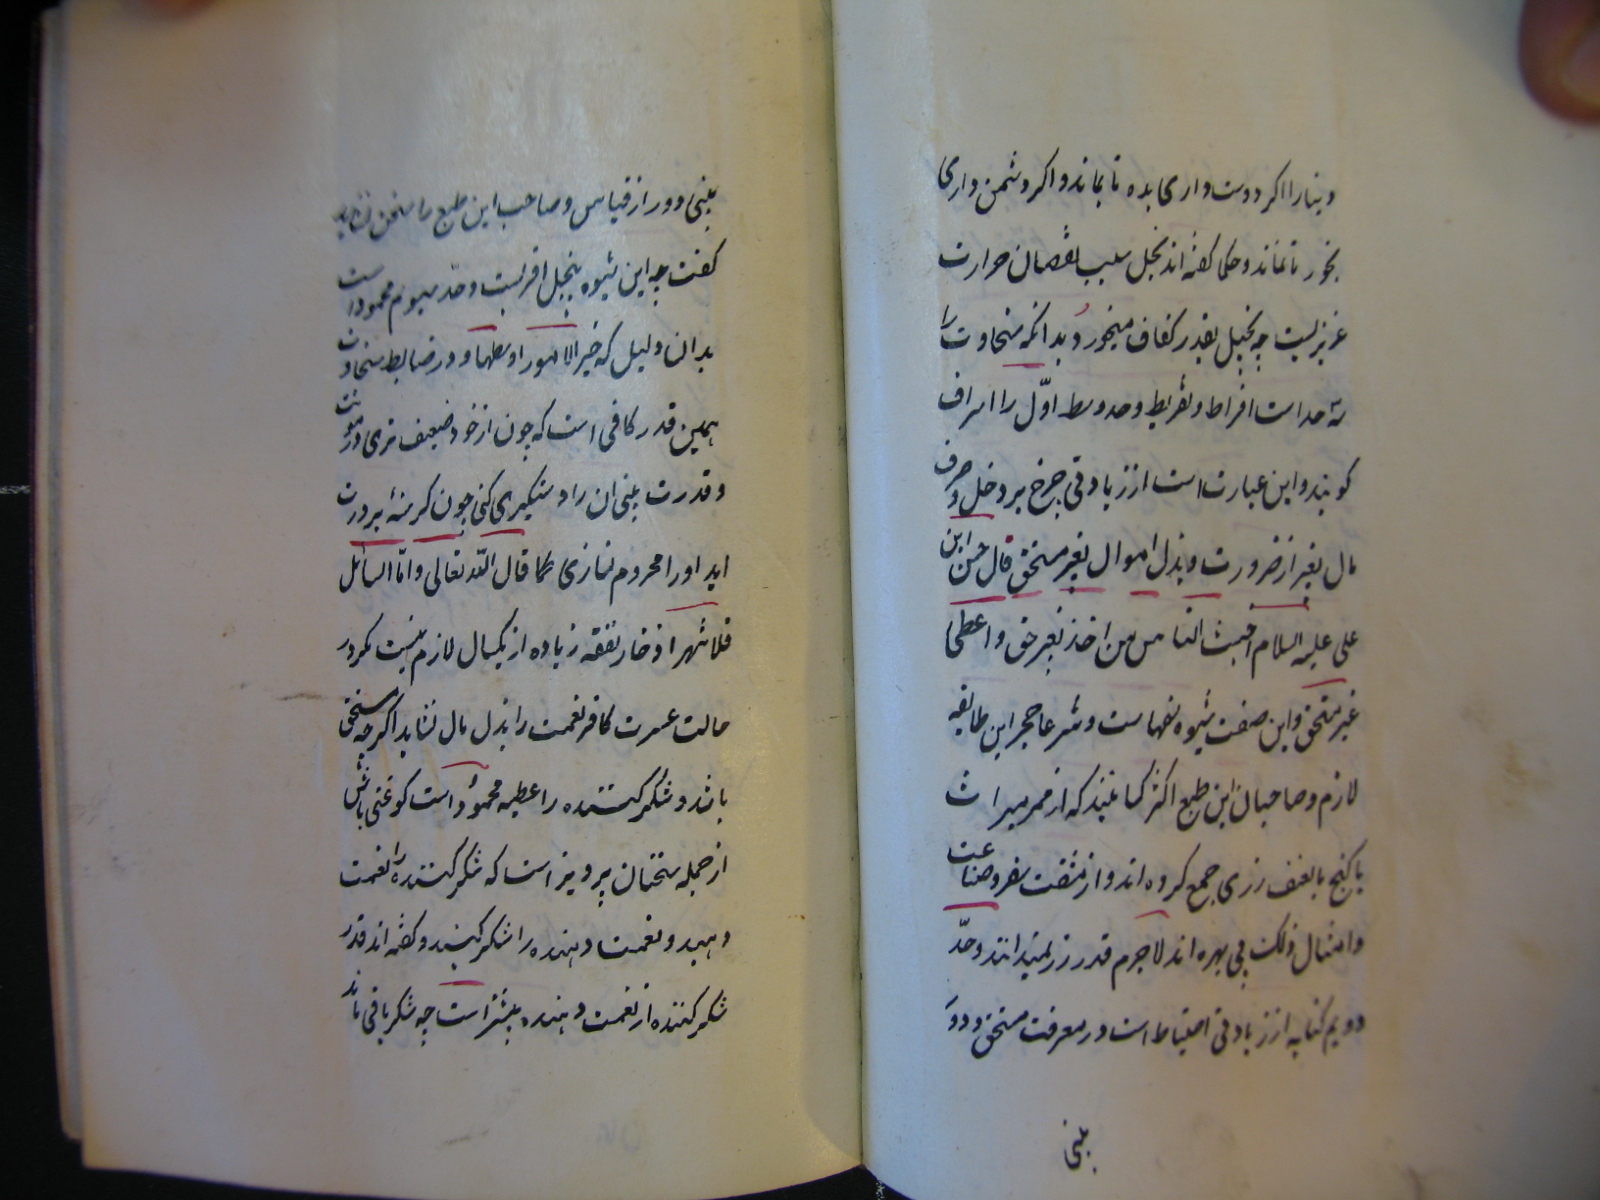 دینار را اگر دوست داری بده تا بماند و اگر دشمن داری
بخور تا نماند و حکما گفته اند بخل سلب نقصان حرارت
غریزیست چه بخیل بقدر کفاف میخورد بدانکه سخاوت را
سه حد است افراط و تفریط و حد وسط اوّل را اسراف
کویند و این عبارت است از زیادتی خرج بر دخل و صرف
مال بغیر از ضرورت و بذل اموال بغیر مستحق قال حسن ابن
علی علیه السلام اخبث الناس من اخذ بغیر حق و اعطی
غیر مستحق و این صفت شیوه سفهاست و شرعا حجر این طایفه
لازم و صاحبان این طبع اکثر کسانیند که از ممر میراث
یا کنج یا بعنف زری جمع کرده اند و از مشقت سفر و صناعت
و امثال ذلک بی بهره اند لاجرم قدر زر نمیدانند و حدّ
دویم کنایه از زیادتی احتیاط است در معرفت مستحق و دور
بینی
بینی دور از قیاس و صاحب این طبع را سخی نشاید
کفت چه این شیوه ببخل اقربست و حدّ سیوم محمود است
بدان دلیل که خیر الامور اوسطها و در ضابط سخاوت
همین قدر کافی است که چون از خود ضعیف تری در مونت
و قدرت بینی ان را دستکیری کنی چون کرسنهٔ بر درت
اید او را محروم نسازی کما قال اللّه تعالی و امّا السائل
فلا تنهر اذخار نفقه زیاده از یکسال لازم نیست مکر در
حالت عسرت کافر نعمت را بذل مال نشاید اکر چه مستحق
باشد و شکر کننده را عطیه محمود است کو غنی باش
از جمله سخنان پرویز است که شکر کننده را نعمت
دهید و نعمت دهنده را شکر کنید و کفته اند قدر
شکر کننده از نعمت دهنده بیشتر است چه شکر باقی ماند